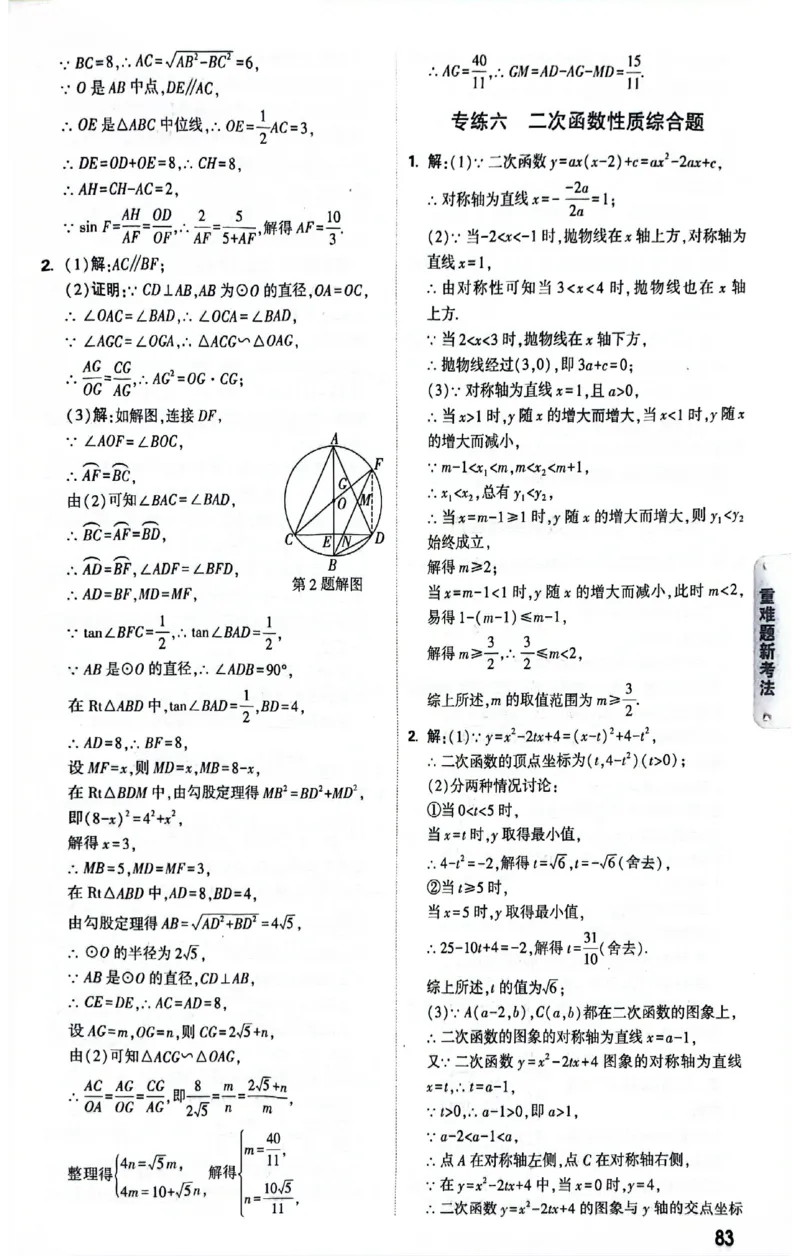 ∵ BC=8,∴ AC=√(AB²-BC²)=6,
∵ O 是 AB 中点,DE∥AC,
∴ OE 是△ABC 中位线,∴ OE=1/2AC=3,
∴ DE=OD+OE=8,∴ CH=8,
∴ AH=CH-AC=2,
∵ sin F=AH/AF=OD/OF,∴ 2/AF=5/(5+AF),解得 AF=10/3.
2. (1)解:AC∥BF;
(2)证明:∵ CD⊥AB,AB 为⊙O 的直径,OA=OC,
∴ ∠OAC=∠BAD,∴ ∠OCA=∠BAD,
∵ ∠AGC=∠OGA,∴ △ACG∽△OAG,
∴ AG/OG=CG/AG,∴ AG²=OG·CG;
(3)解:如解图,连接 DF,
∵ ∠AOF=∠BOC,
∴ ⌒AF=⌒BC,
由(2)可知∠BAC=∠BAD,
∴ ⌒BC=⌒AF=⌒BD,
∴ ⌒AD=⌒BF,∠ADF=∠BFD,
∴ AD=BF,MD=MF,
A
F
G
O
M
C
E
N
D
B
第 2 题解图
∵ tan∠BFC=1/2,∴ tan∠BAD=1/2,
∵ AB 是⊙O 的直径,∴ ∠ADB=90°,
在 Rt△ABD 中,tan∠BAD=1/2,BD=4,
∴ AD=8,∴ BF=8,
设 MF=x,则 MD=x,MB=8-x,
在 Rt△BDM 中,由勾股定理得 MB²=BD²+MD²,
即(8-x)²=4²+x²,
解得 x=3,
∴ MB=5,MD=MF=3,
在 Rt△ABD 中,AD=8,BD=4,
由勾股定理得 AB=√(AD²+BD²)=4√5,
∴ ⊙O 的半径为 2√5,
∵ AB 是⊙O 的直径,CD⊥AB,
∴ CE=DE,∴ AC=AD=8,
设 AG=m,OG=n,则 CG=2√5+n,
由(2)可知△ACG∽△OAG,
∴ AC/OA=AG/OG=CG/AG,即8/(2√5)=m/n=(2√5+n)/m,
整理得{4n=√5m, 4m=10+√5n, 解得{m=40/11, n=10√5/11,
∴ AG=40/11,∴ GM=AD-AG-MD=15/11.
专练六 二次函数性质综合题
1. 解:(1)∵ 二次函数 y=ax(x-2)+c=ax²-2ax+c,
∴ 对称轴为直线 x=-(-2a)/2a=1;
(2)∵ 当-2<x<-1 时,抛物线在 x 轴上方,对称轴为
直线 x=1,
∴ 由对称性可知当 3<x<4 时,抛物线也在 x 轴
上方.
∵ 当 2<x<3 时,抛物线在 x 轴下方,
∴ 抛物线经过(3,0),即 3a+c=0;
(3)∵ 对称轴为直线 x=1,且 a>0,
∴ 当 x>1 时,y 随 x 的增大而增大,当 x<1 时,y 随 x
的增大而减小,
∵ m-1<x₁<m,m<x₂<m+1,
∴ x₁<x₂,总有 y₁<y₂,
∴ 当 x=m-1≥1 时,y 随 x 的增大而增大,则 y₁<y₂
始终成立,
解得 m≥2;
当 x=m-1<1 时,y 随 x 的增大而减小,此时 m<2,
易得 1-(m-1)≤m-1,
解得 m≥3/2,∴ 3/2≤m<2,
综上所述,m 的取值范围为 m≥3/2.
2. 解:(1)∵ y=x²-2tx+4=(x-t)²+4-t²,
∴ 二次函数的顶点坐标为(t,4-t²)(t>0);
(2)分两种情况讨论:
①当 0<t<5 时,
当 x=t 时,y 取得最小值,
∴ 4-t²=-2,解得 t=√6,t=-√6(舍去),
②当 t≥5 时,
当 x=5 时,y 取得最小值,
∴ 25-10t+4=-2,解得 t=31/10(舍去).
综上所述,t 的值为√6;
(3)∵ A(a-2,b),C(a,b)都在二次函数的图象上,
∴ 二次函数的图象的对称轴为直线 x=a-1,
又∵ 二次函数 y=x²-2tx+4 图象的对称轴为直线
x=t,∴ t=a-1,
∵ t>0,∴ a-1>0,即 a>1,
∵ a-2<a-1<a,
∴ 点 A 在对称轴左侧,点 C 在对称轴右侧,
∵ 在 y=x²-2tx+4 中,当 x=0 时,y=4,
∴ 二次函数 y=x²-2tx+4 的图象与 y 轴的交点坐标
重难题新考法
83